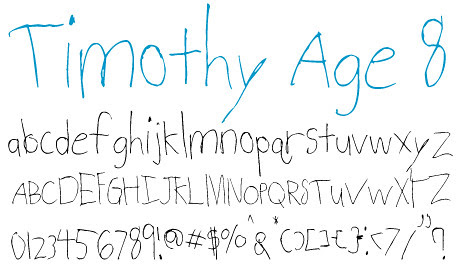 Timothy Age 8
abcdefghijklmnopqrstuvwxyz
ABCDEFGHIJKLMNOPQRSTUVWXYZ
0123456789!@#$%^&*()[]{}:;<>/,"?